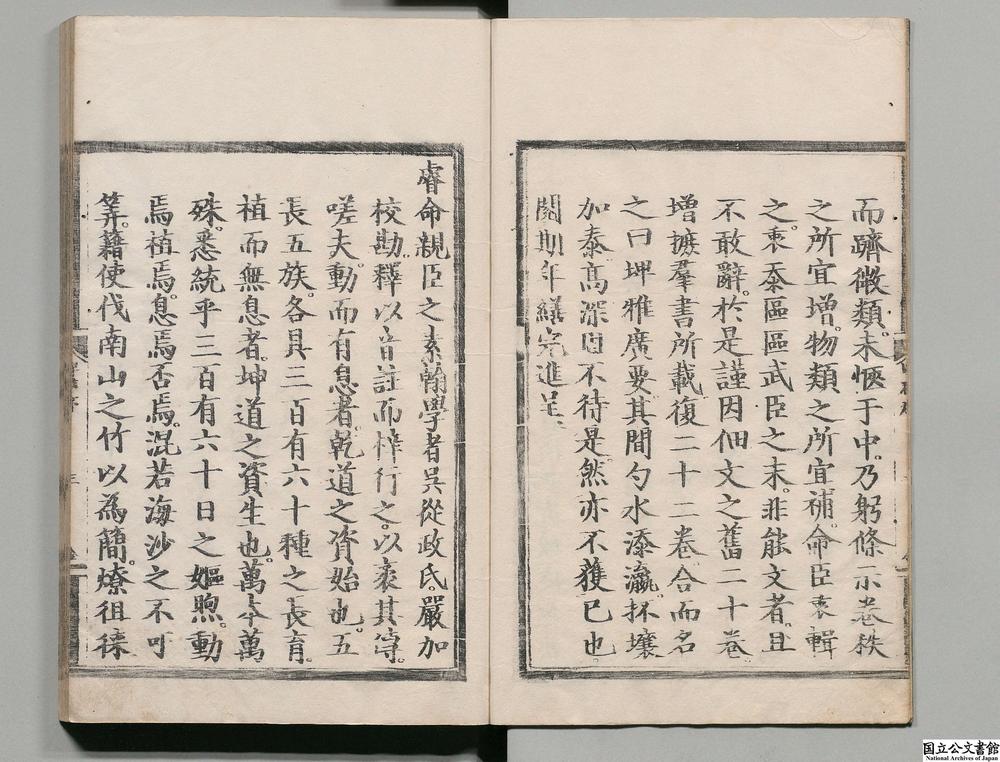 而躋微類。未愜于中。乃躬條示卷秩
之所宜增。物類之所宜補。命臣裒輯
之。裒忝區區武臣之末。非能文者。且
不敢辭。於是謹因佃文之舊二十卷。
增摭羣書所載復二十二卷。合而名
之曰坤雅廣要其間勺水添瀛。抔壤
加泰。高深固不待是。然亦不獲已也。
閱期年繕完進呈。
睿命親臣之素翰學者吳從政氏。嚴加
校勘。釋以音註而梓行之。以衷其傳。
嗟夫。動而有息者。乾道之資始也。五
長五族。各具三百有六十種之長育。
植而無息者。坤道之資生也。萬本萬
殊。悉統乎三百有六十日之嫗煦。動
焉植焉。息焉否焉。混若海沙之不可
筭。籍使伐南山之竹以為簡。燎徂徠
国立公文書館
National Archives of Japan